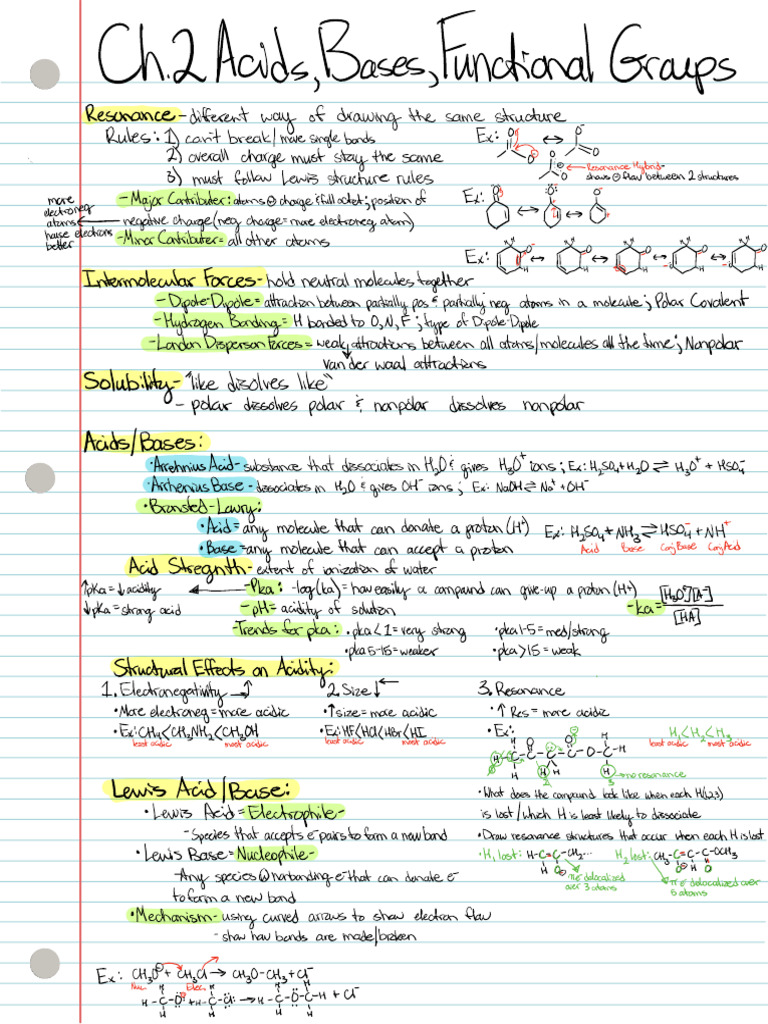 Ch.2 Acids, Bases, Functional Groups
Resonance - different way of drawing the same structure
Rules: 1) can't break/move single bonds
2) overall charge must stay the same
3) must follow Lewis structure rules
Ex:
Resonance Hybrid-
shows ⊖ flow between 2 structures
- Major Contributer: atoms ⊖ charge & full octet; position of
negative charge (neg charge = more electroneg atom)
- Minor Contributer = all other atoms
more
electroneg
atoms
house electrons
better
Ex:
Ex:
Intermolecular Forces - hold neutral molecules together
- Dipole-Dipole = attraction between partially pos & partially neg atoms in a molecule; Polar Covalent
- Hydrogen Bonding = H bonded to O,N,F; type of Dipole-Dipole
- London Disperson Forces = weak attractions between all atoms/molecules all the time; Nonpolar
van der waal attractions
Solubility - "like disolves like"
- polar dissolves polar & nonpolar dissolves nonpolar
Acids/Bases:
• Arrehnius Acid - substance that dissociates in H₂O & gives H₃O⁺ ions; Ex: H₂SO₄ + H₂O ⇌ H₃O⁺ + HSO₄⁻
• Arrhenius Base - dissociates in H₂O & gives OH⁻ ions; Ex: NaOH ⇌ Na⁺ + OH⁻
• Bronsted-Lowry:
• Acid = any molecule that can donate a proton (H⁺)
• Base = any molecule that can accept a proton
Ex: H₂SO₄ + NH₃ ⇌ HSO₄⁻ + NH⁺
Acid Base Conj Base Conj Acid
Acid Stregnth - extent of ionization of water
↑pKa = ↓acidity
↓pKa = strong acid
- Pka: -log(ka) = how easily a compound can give-up a proton (H⁺)
- pH = acidity of solution
- ka = [H₃O⁺][A⁻]
[HA]
- Trends for pka: • pka<1 = very strong • pka 1-5 = med/strong
• pka 5-15 = weaker • pka >15 = weak
Structural Effects on Acidity:
1. Electronegativity →↑
• More electroneg = more acidic
• Ex: CH₄<CH₃NH₂<CH₃OH
least acidic most acidic
2. Size ↓←
• ↑size = more acidic
• Ex: HF<HCl<HBr<HI
least acidic most acidic
3. Resonance
• ↑ Res = more acidic
• Ex:
H₁<H₂<H₃
least acidic most acidic
H H O H
H-C-C-C-C-O-C-H
H H H
1 2 3
→ no resonance
• What does the compound look like when each H(1,2,3)
is lost/which H is least likely to dissociate
• Draw resonance structures that occur when each H is lost
• H₁ lost: H-C=C-CH₂...
O
→ π e⁻ delocalized
over 3 atoms
H₂ lost: CH₃-C=C-C-OCH₃
O H O
→ π e⁻ delocalized over
5 atoms
Lewis Acid/Base:
• Lewis Acid = Electrophile -
- Species that accepts e⁻ pairs to form a new bond
• Lewis Base = Nucleophile -
- Any species ⓦ nonbonding e⁻ that can donate e⁻
to form a new bond
• Mechanism - using curved arrows to show electron flow
- show how bonds are made/broken
Ex: CH₃O⊖ + CH₃Cl → CH₃O-CH₃ + Cl⁻
Nuc. Elec.
H H H H
H-C-O + H-C-Cl: → H-C-O-C-H + Cl⁻
H H H H